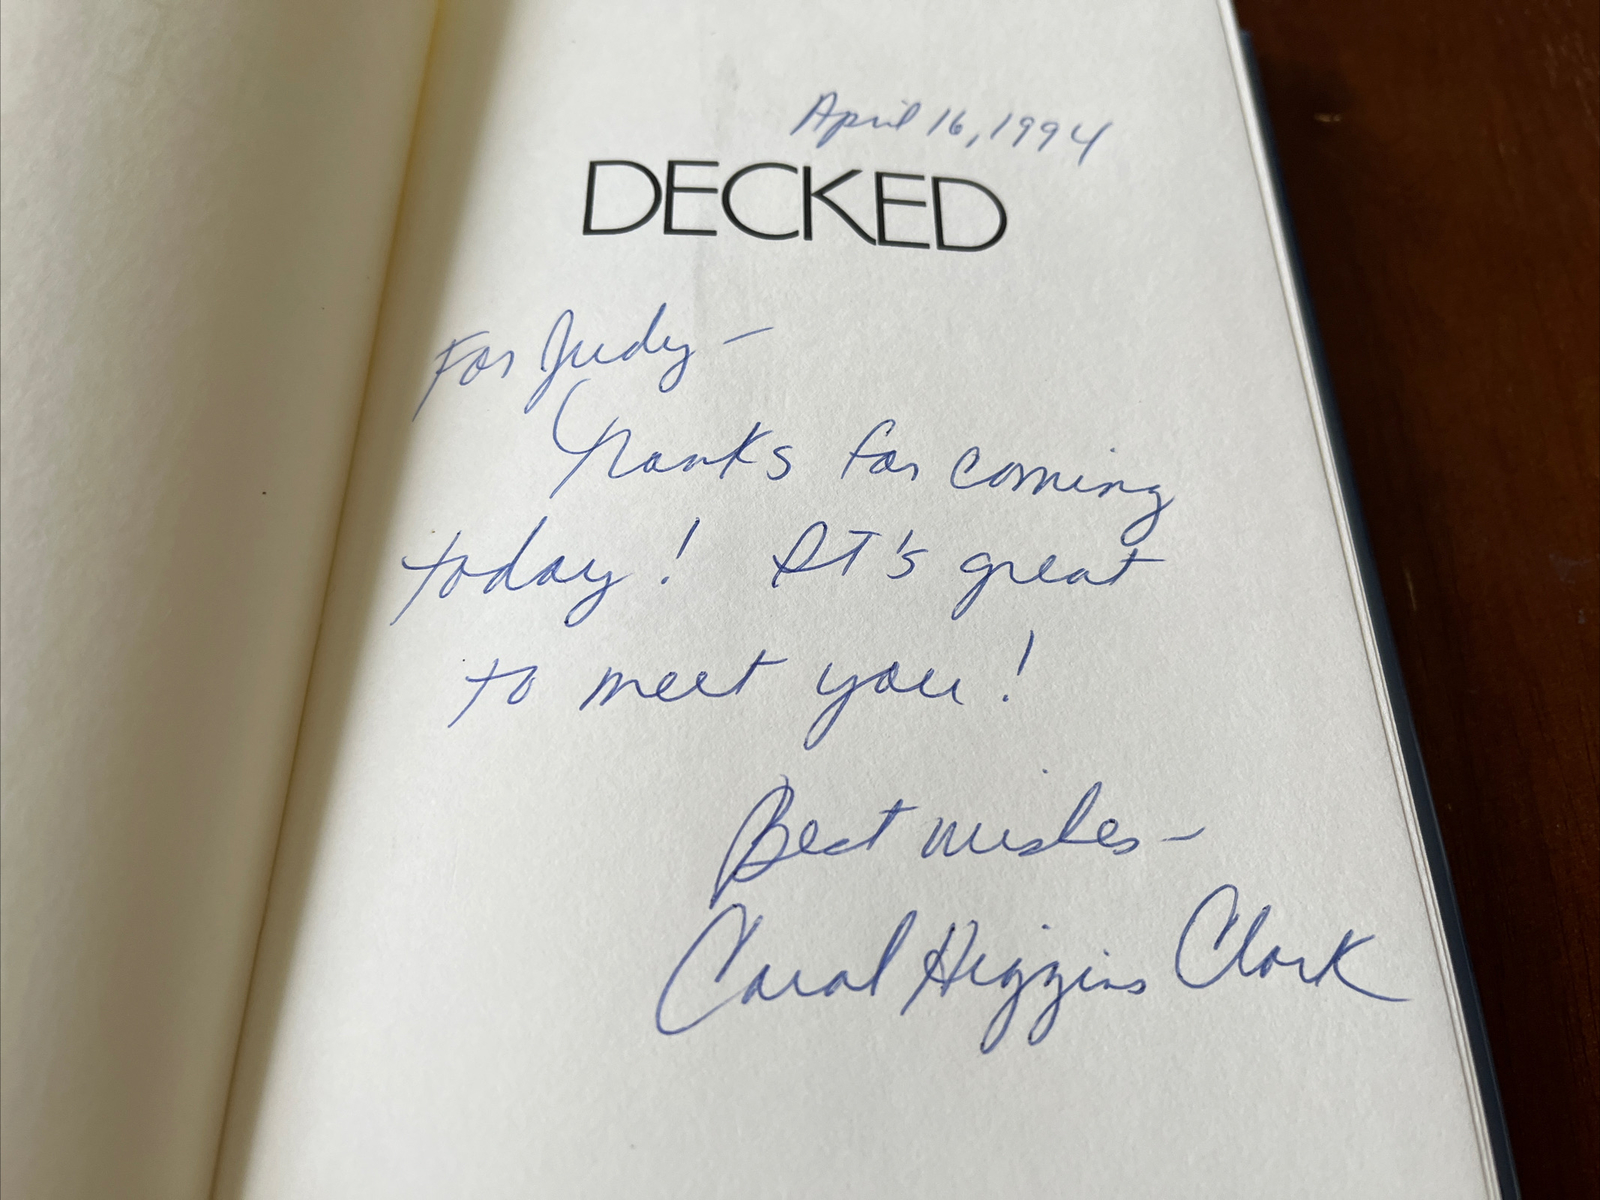 April 16, 1994
DECKED
For Judy —
Thanks for coming
today! It's great
to meet you!
Best wishes —
Carol Higgins Clark